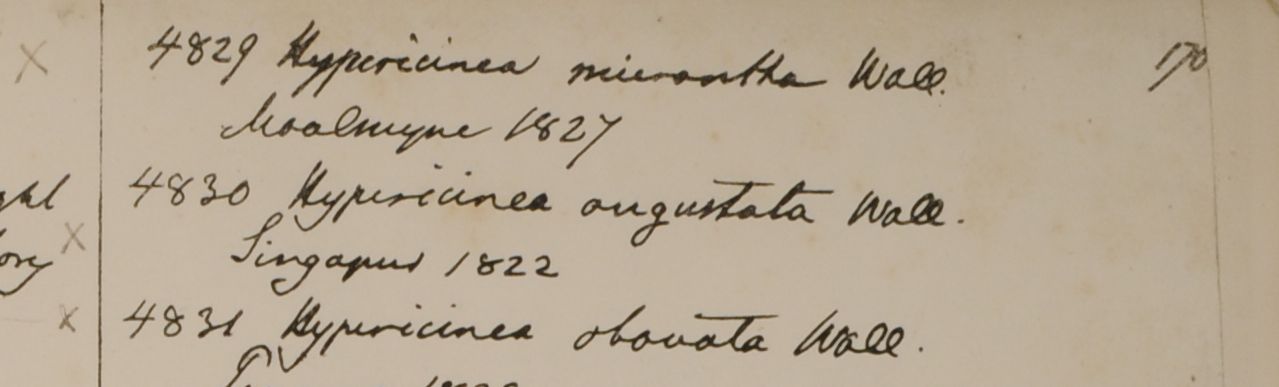 4829 Hypericinea micrantha Wall. 170
Moalmyne 1827
4830 Hypericinea angustata Wall.
Singapur 1822
4831 Hypericinea obovata Wall.